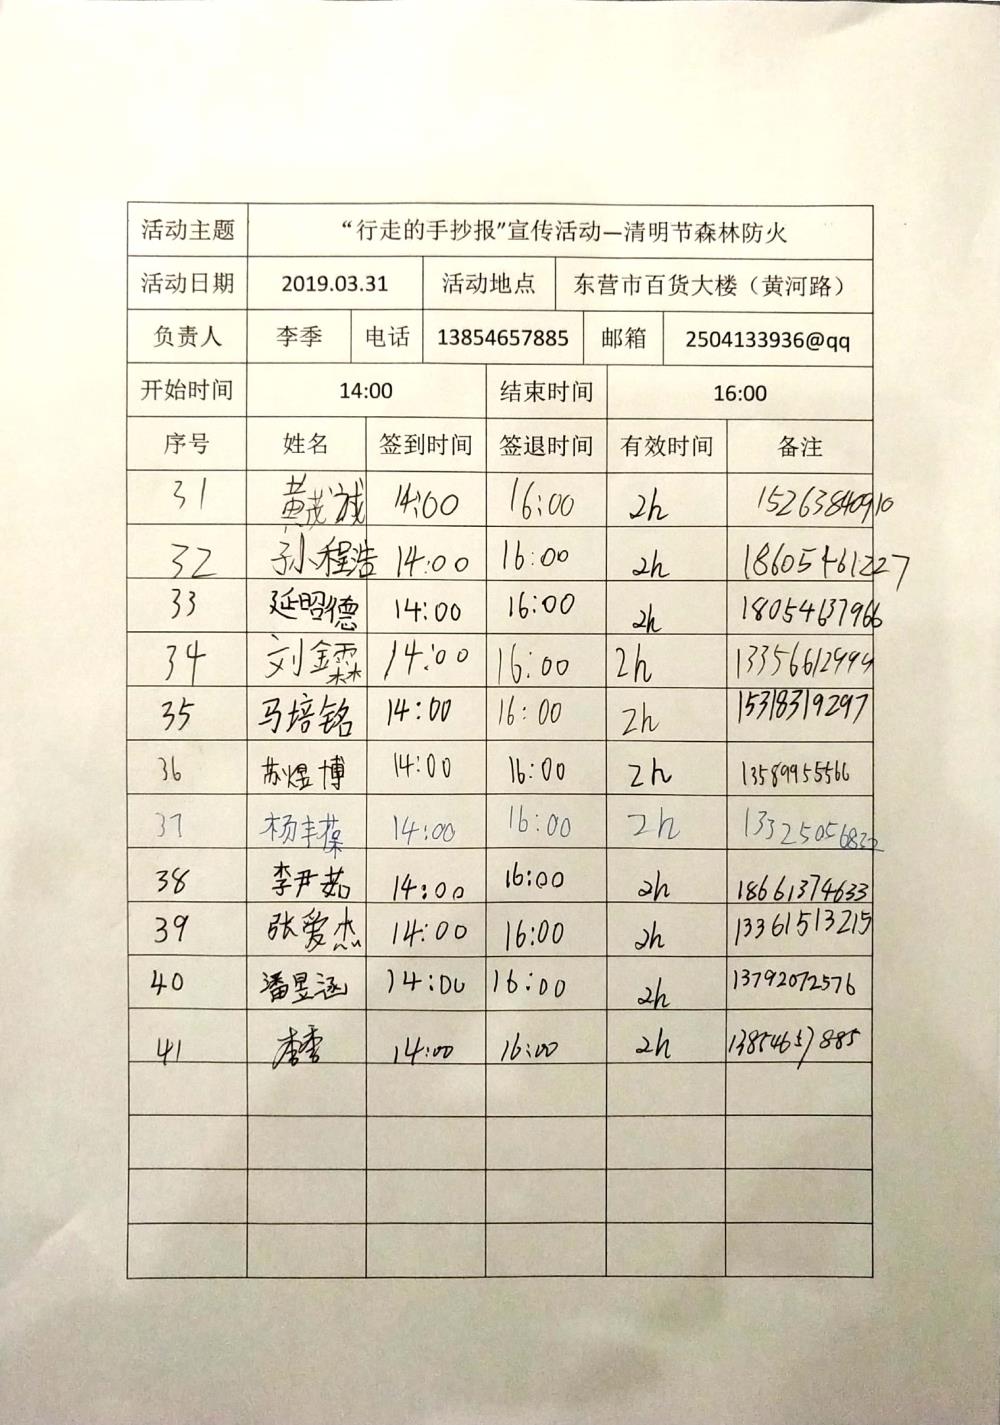 活动主题 “行走的手抄报”宣传活动—清明节森林防火
活动日期 2019.03.31 活动地点 东营市百货大楼（黄河路）
负责人 李季 电话 13854657885 邮箱 2504133936@qq
开始时间 14:00 结束时间 16:00
序号 姓名 签到时间 签退时间 有效时间 备注
31 黄茂诚 14:00 16:00 2h 15263840910
32 孙程浩 14:00 16:00 2h 18605461227
33 延昭德 14:00 16:00 2h 18054637966
34 刘金霖 14:00 16:00 2h
35 马培铭 14:00 16:00 2h 15318319297
36 苏煜博 14:00 16:00 2h 13589955566
37 杨丰葆 14:00 16:00 2h
38 李尹茹 14:00 16:00 2h 18661374633
39 张爱杰 14:00 16:00 2h 13361513215
40 潘昱涵 14:00 16:00 2h 13792072576
41 李季 14:00 16:00 2h 13854657885